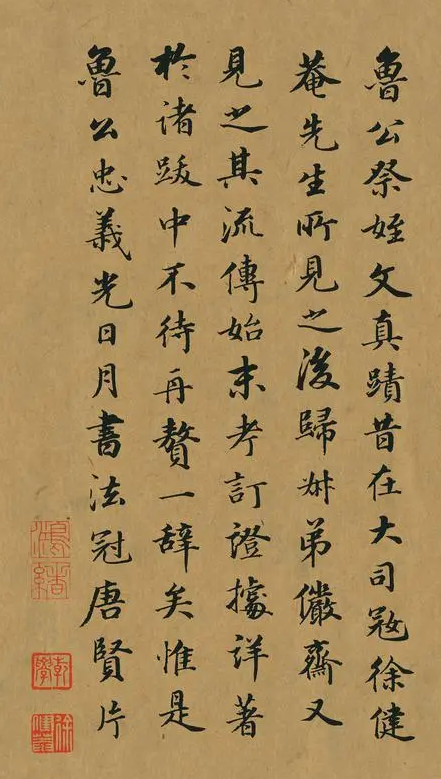 魯公祭姪文真蹟昔在大司寇徐健
菴先生所見之後歸叔弟儼齋又
見之其流傳始末考訂證據詳著
於諸跋中不待再贅一辭矣惟是
魯公忠義光日月書法冠唐賢片
鴻緒
乾學
徐健菴